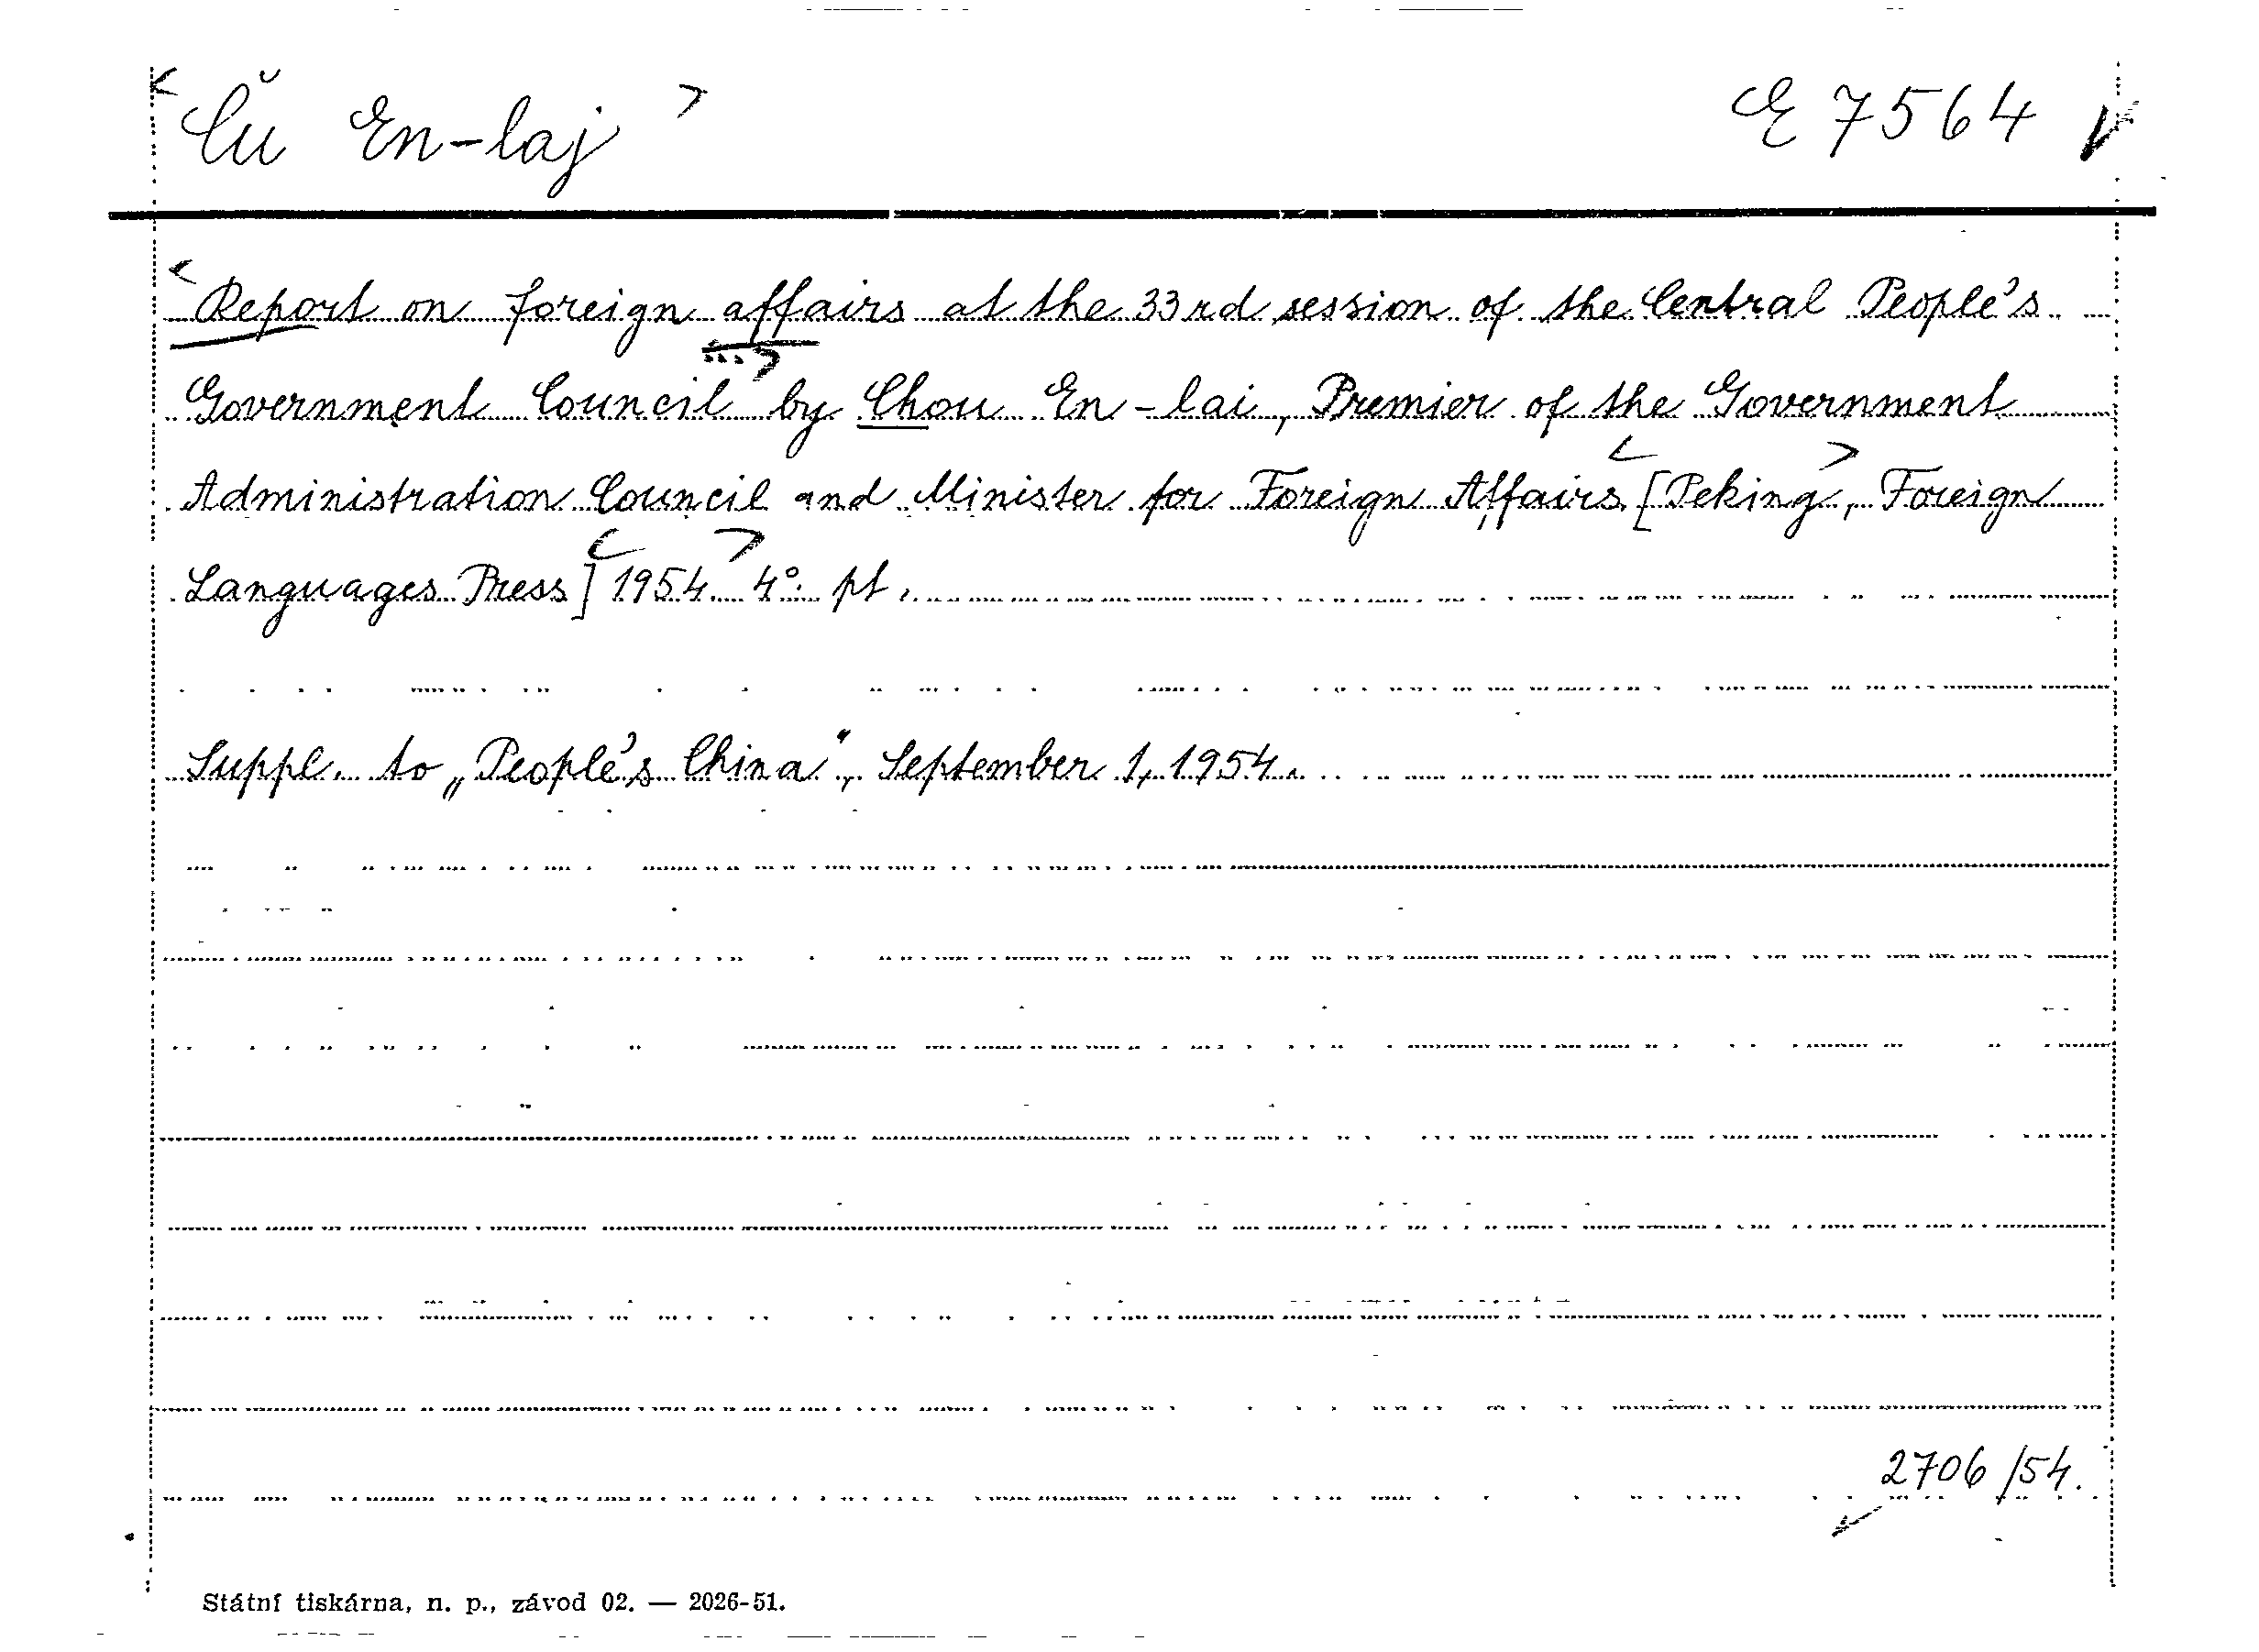 <Ču En-laj> E 7564
<Report on foreign affairs at the 33rd session of the Central People's
...>
Government Council by Chou En-lai, Premier of the Government
Administration Council and Minister for Foreign Affairs. [<Peking>, Foreign
Languages Press] <1954> 4°. pt.
Suppl. to „People's China", September 1, 1954.
2706/54.
Státní tiskárna, n. p., závod 02. — 2026-51.